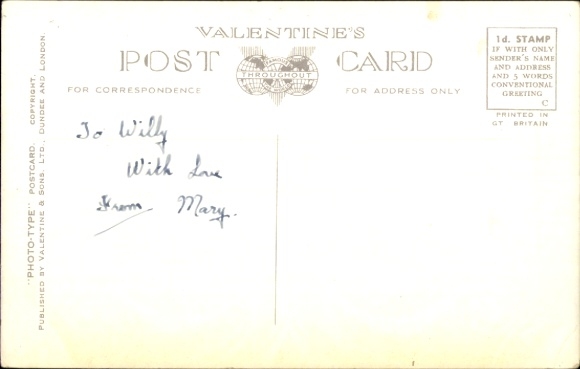 VALENTINE'S
POST CARD
THROUGHOUT
FOR CORRESPONDENCE
FOR ADDRESS ONLY
1d. STAMP
IF WITH ONLY
SENDER'S NAME
AND ADDRESS
AND 5 WORDS
CONVENTIONAL
GREETING
C
PRINTED IN
GT BRITAIN
"PHOTO-TYPE" POSTCARD. COPYRIGHT.
PUBLISHED BY VALENTINE & SONS, LTD., DUNDEE AND LONDON.
To Willy
With Love
From Mary.